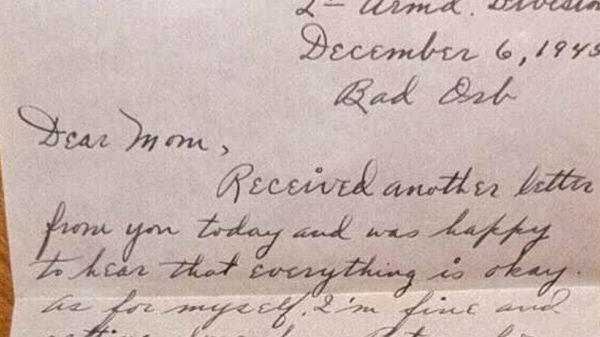 2nd Armd. Division
December 6, 1945
Bad Orb
Dear Mom,
Received another letter
from you today and was happy
to hear that everything is okay.
As for myself, I'm fine and
getting